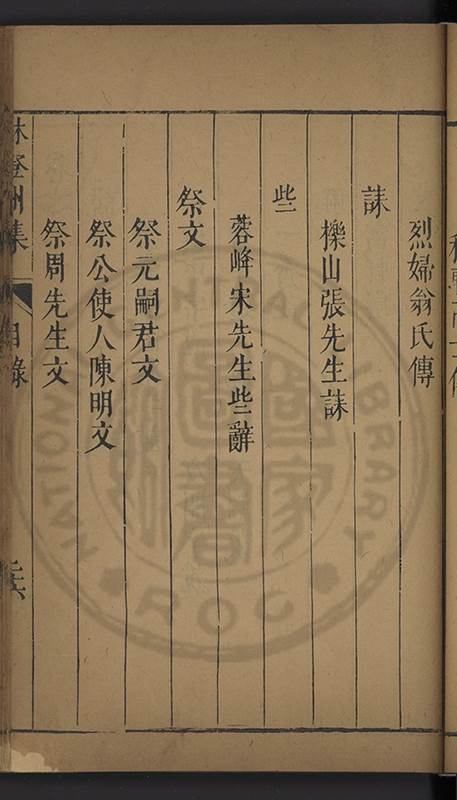 烈婦翁氏傳
誄
櫟山張先生誄
些
蓉峰宋先生些辭
祭文
祭元嗣君文
祭公使人陳明文
祭周先生文
林登州集
目錄
NATIONAL CENTRAL LIBRARY
ROC